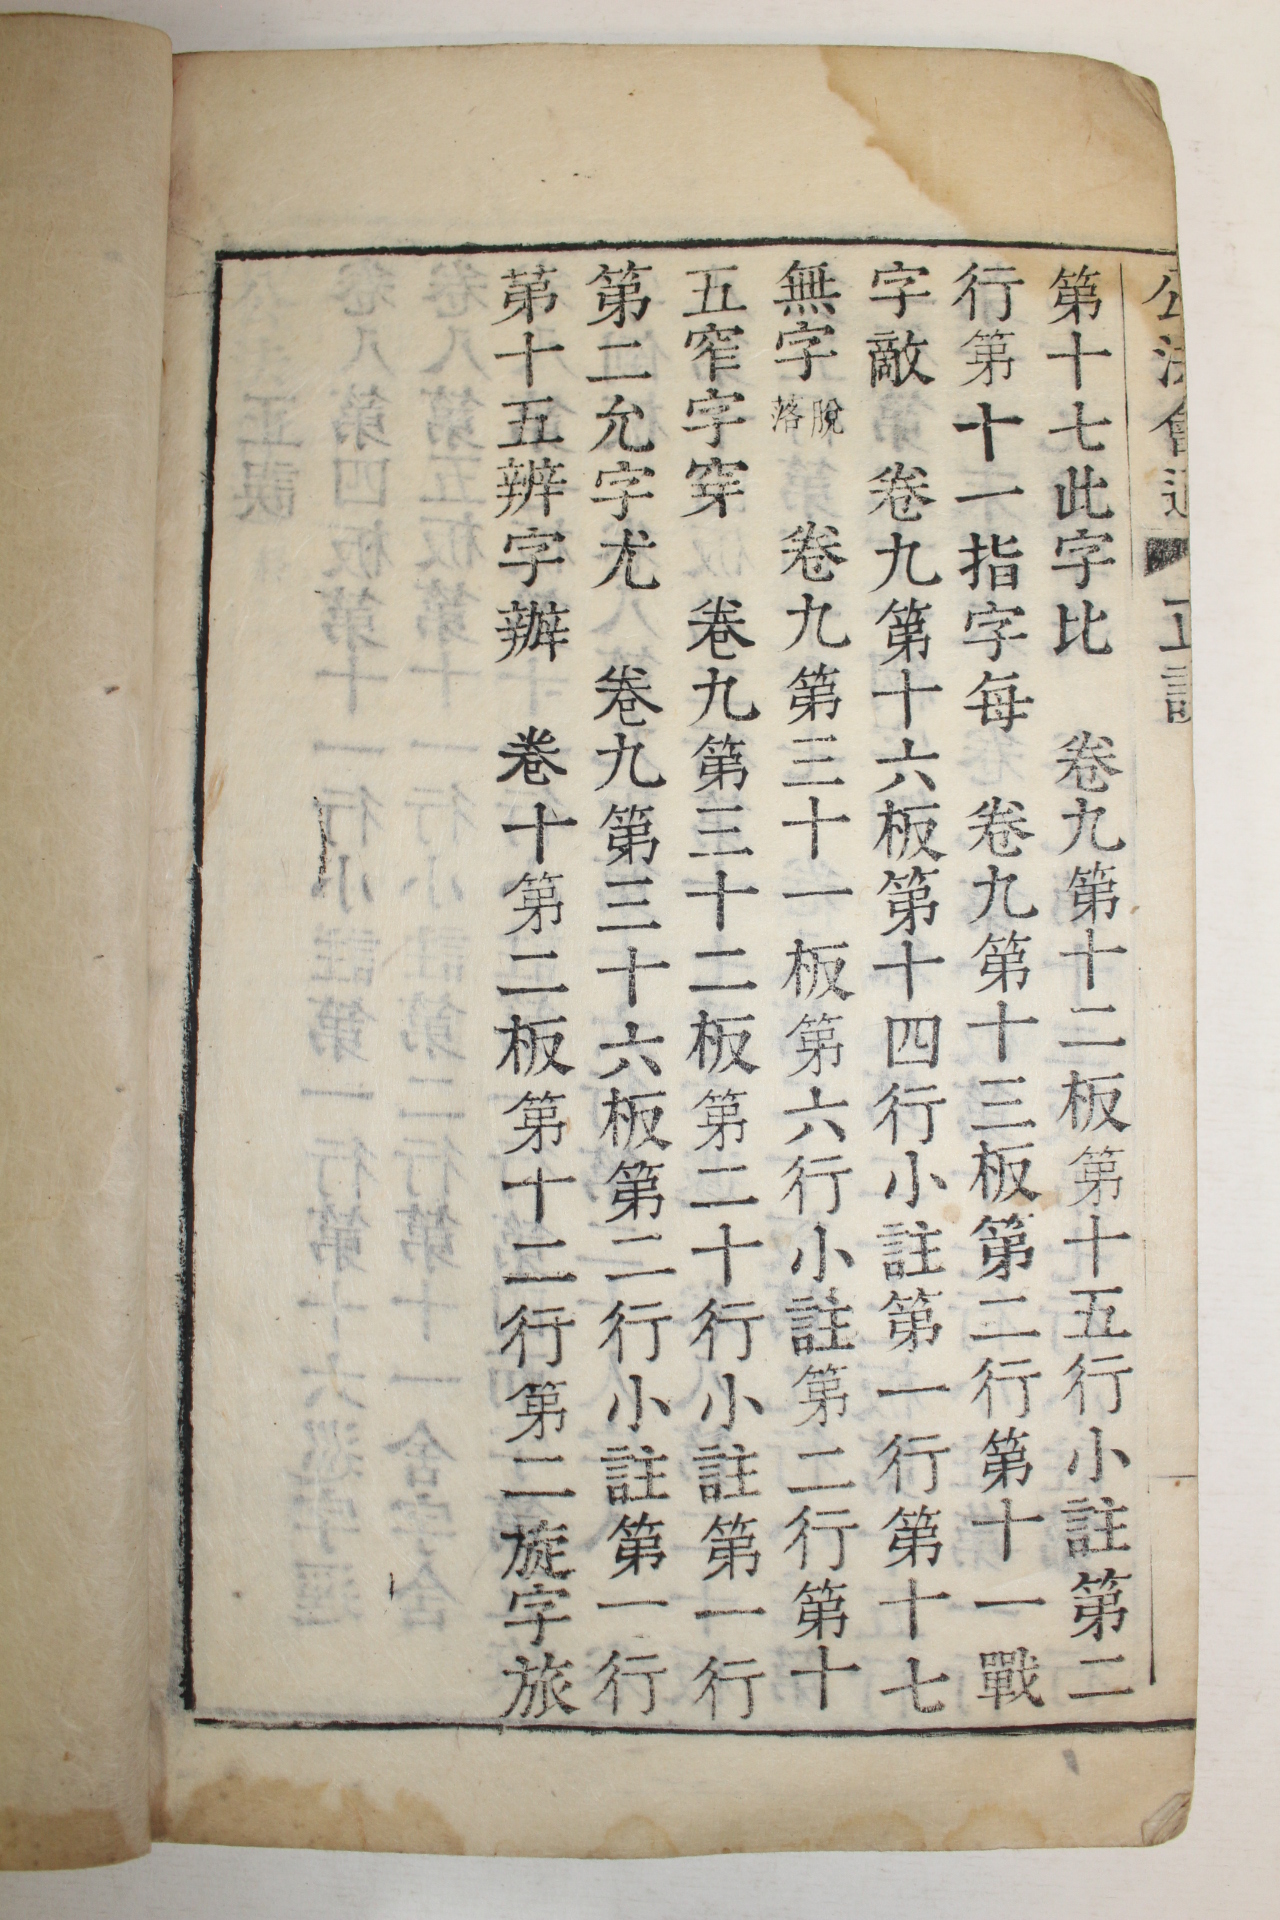 公法會通 正誤
第十七此字比 卷九第十二板第十五行小註第二
行第十一指字每 卷九第十三板第二行第十一戰
字敵 卷九第十六板第十四行小註第一行第十七
無字脫落 卷九第三十一板第六行小註第二行第十
五窄字穿 卷九第三十二板第二十行小註第一行
第二允字尤 卷九第三十六板第二行小註第一行
苐十五辨字辦 卷十第二板第十二行第二旋字旅